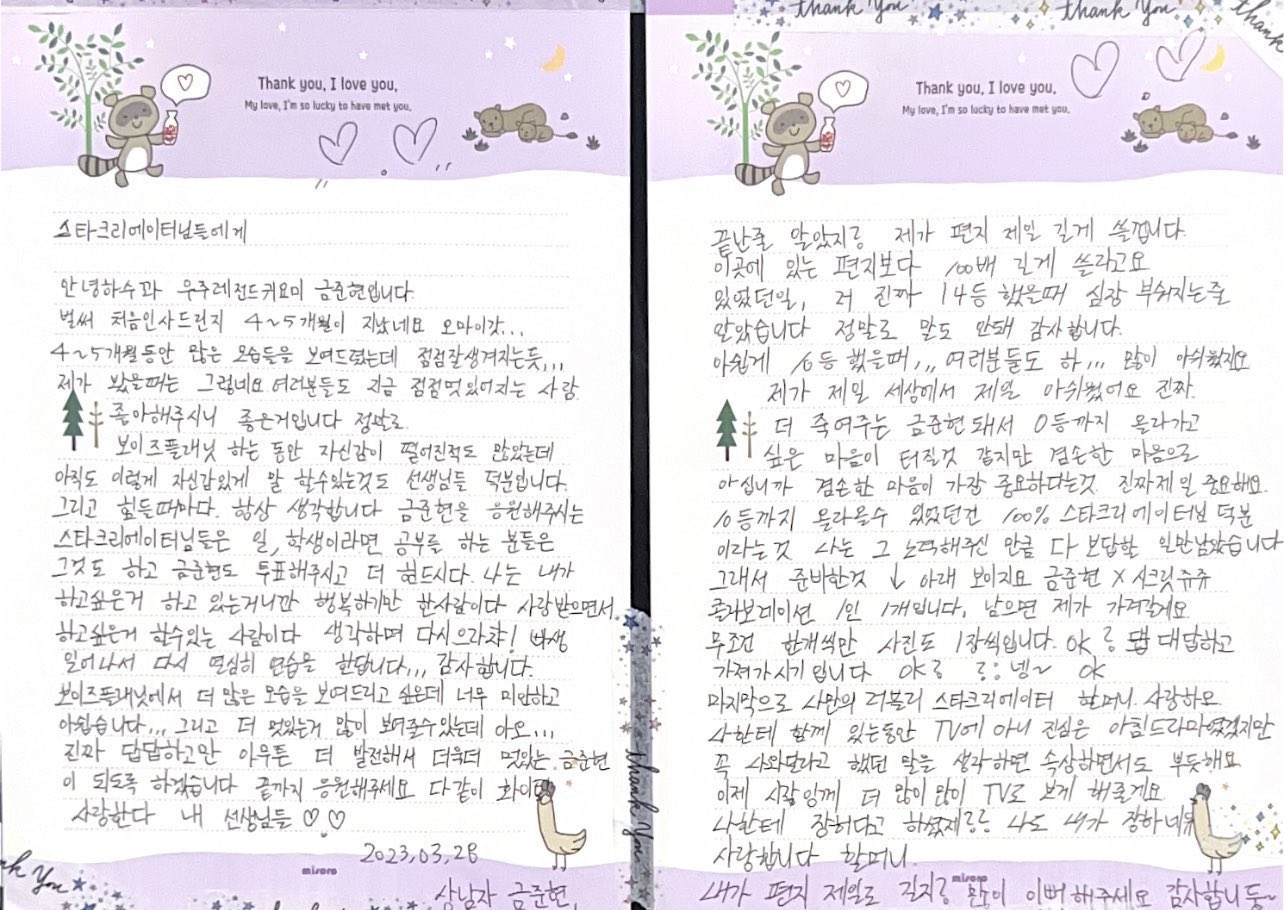 thank you
Thank you, I love you,
My love, I'm so lucky to have met you.
스타크리에이터님들에게
안녕하수과 우주레전드귀요미 금준현입니다.
벌써 처음인사드린지 4~5개월이 지났네요 오마이갓...
4~5개월동안 많은 모습들을 보여드렸는데 점점잘생겨지는듯,,,
제가 봤을때는 그렇네요 여러분들도 지금 점점멋있어지는 사람
좋아해주시니 좋은거입니다 정말로.
보이즈플래닛 하는 동안 자신감이 떨어진적도 많았는데
아직도 이렇게 자신감있게 말 할수있는것도 선생님들 덕분입니다.
그리고 힘들때마다. 항상 생각합니다 금준현을 응원해주시는
스타크리에이터님들은 일, 학생이라면 공부를 하는 분들은
그것도 하고 금준현도 투표해주시고 더 힘드시다. 나는 내가
하고싶은거 하고 있는거니깐 행복하기만 한사람이다 사랑받으면서
하고싶은거 할수있는 사람이다 생각하며 다시으라챠!
일어나서 다시 열심히 연습을 한답니다,,, 감사합니다.
보이즈플래닛에서 더 많은 모습을 보여드리고 싶은데 너무 미안하고
아쉽습니다,,, 그리고 더 멋있는거 많이 보여줄수있는데 아오...
진짜 답답하고만 아무튼 더 발전해서 더욱더 멋있는 금준현
이 되도록 하겠습니다 끝까지 응원해주세요 다같이 화이팅
사랑한다 내 선생님들 ♡ ♡
2023,03,28
misoro
상남자 금준현,
thank You
thank You
thank You
thank
Thank you, I love you,
My love, I'm so lucky to have met you.
끝난줄 알았지? 제가 편지 제일 길게 쓸껍니다.
이곳에 있는 편지보다 100배 길게 쓸라고요
있었던일, 저 진짜 14등 했을때 심장 부숴지는줄
알았습니다 정말로 말도 안돼 감사합니다.
아쉽게 16등 했을때,,, 여러분들도 하,,, 많이 아쉬웠지요
제가 제일 세상에서 제일 아쉬웠어요 진짜.
더 죽여주는 금준현돼서 0등까지 올라가고
싶은 마음이 터질것 같지만 겸손한 마음으로
아십니까 겸손한 마음이 가장 중요하다는것 진짜제일 중요해요.
10등까지 올라올수 있었던건 100% 스타크리에이터님 덕분
이라는것 나는 그 노력해주신 만큼 다 보답할 일만남았습니다
그래서 준비한것 ↓ 아래 보이지요 금준현 X 시크릿쥬쥬
콜라보레이션 1인 1개입니다, 남으면 제가 가져갈게요
무조건 한개씩만 사진도 1장씩입니다. OK? 대답하고
가져가시기입니다 OK? ?: 넹~ OK
마지막으로 나만의 러블리 스타크리에이터 할머니 사랑하오
나한테 함께 있는동안 TV에 아니 진심은 아침드라마였겠지만
꼭 나와달라고 했던 말을 생각하면 속상하면서도 부듯해요
이제 더 많이많이 TV로 보게 해줄게요
나한테 장하다고 하셨제?? 나도 내가 장하네유
사랑합니다 할머니.
misoro
내가 편지 제일로 길지? 많이 이뻐해주세요 감사합니둥~